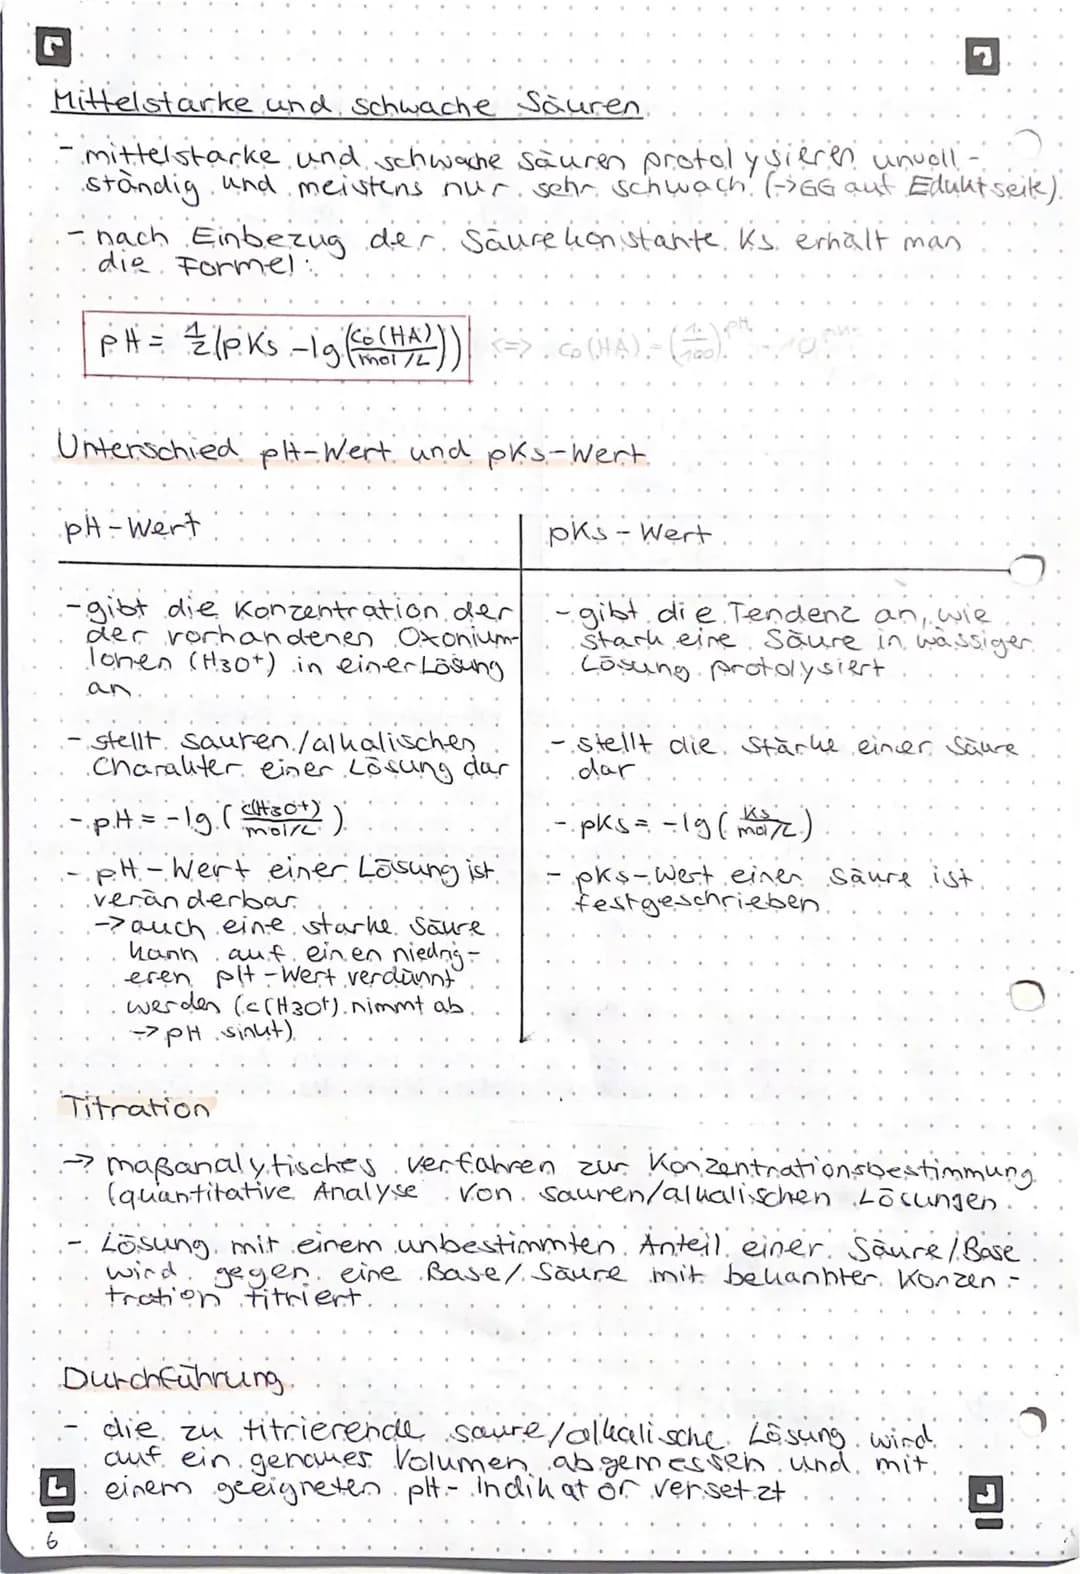 Mittelstarke und schwache Säuren
- mittelstarke und schwache Säuren protolysieren unvoll-
ständig und meistens nur sehr schwach. (->GG auf Eduktseite).
- nach Einbezug der Säurekonstante Ks erhält man
die Formel:
pH = 1/2 (pKs - lg (c₀(HA) / mol/L)) <=> c₀(HA) = (1/100)^pH
Unterschied pH-Wert und pKs-Wert
pH-Wert
- gibt die Konzentration der
der vorhandenen Oxonium-
Ionen (H3O+) in einer Lösung
an.
- stellt sauren/alkalischen
Charakter einer Lösung dar
- pH = -lg (c(H3O+) / mol/L)
- pH-Wert einer Lösung ist
veränderbar
-> auch eine starke Säure
kann auf einen niedrig-
eren pH-Wert verdünnt
werden (c(H3O+) nimmt ab
-> pH sinkt)
pKs-Wert
- gibt die Tendenz an, wie
stark eine Säure in wässiger
Lösung protolysiert
- stellt die Stärke einer Säure
dar
- pKs = -lg (Ks / mol/L)
- pKs-Wert einer Säure ist
festgeschrieben.
Titration
-> maßanalytisches Verfahren zur Konzentrationsbestimmung
(quantitative Analyse von sauren/alkalischen Lösungen.
- Lösung mit einem unbestimmten Anteil einer Säure/Base
wird gegen eine Base/Säure mit bekannter Konzen-
tration titriert.
Durchführung
- die zu titrierende saure/alkalische Lösung wird
auf ein genaues Volumen abgemessen und mit
einem geeigneten pH-Indikator versetzt
6